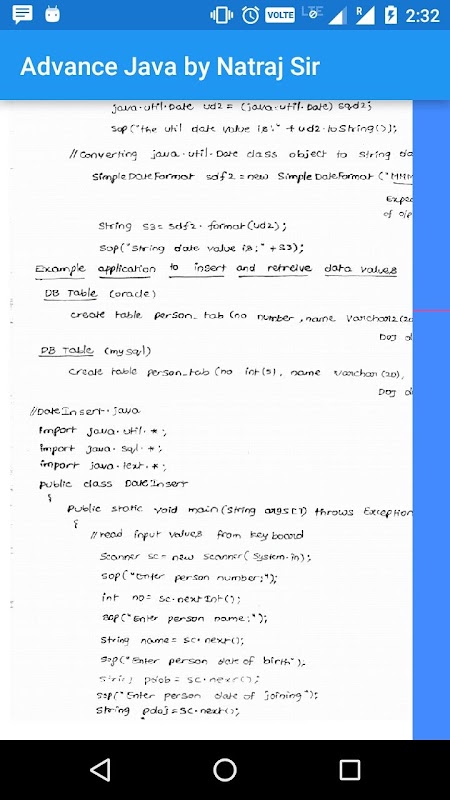 VOLTE LTE R 2:32
Advance Java by Natraj Sir
java.util.Date ud2 = (java.util.Date) sqd2;
sop("the util date value is:" + ud2.toString());
//Converting java.util.Date class object to string da
SimpleDateFormat sdf2 = new SimpleDateFormat ("MMM
Expec
of o/p
String S3 = sdf2.format(ud2);
sop("String date value is:" + S3);
Example application to insert and retreive data values
DB Table (oracle)
create table person_tab (no number, name varchar2(20
Doj d
DB Table (mysql)
create table person_tab (no int(5), name varchar(20),
Doj d
//DateInsert.java
import java.util.*;
import java.sql.*;
import java.text.*;
public class DateInsert
{
public static void main(String args[]) throws Exception
{
//read input values from keyboard
Scanner sc = new Scanner(System.in);
sop("Enter person number:");
int no = sc.nextInt();
sop("Enter person name:");
String name = sc.next();
sop("Enter person date of birth");
String pdob = sc.next();
sop("Enter person date of joining");
String pdoj = sc.next();